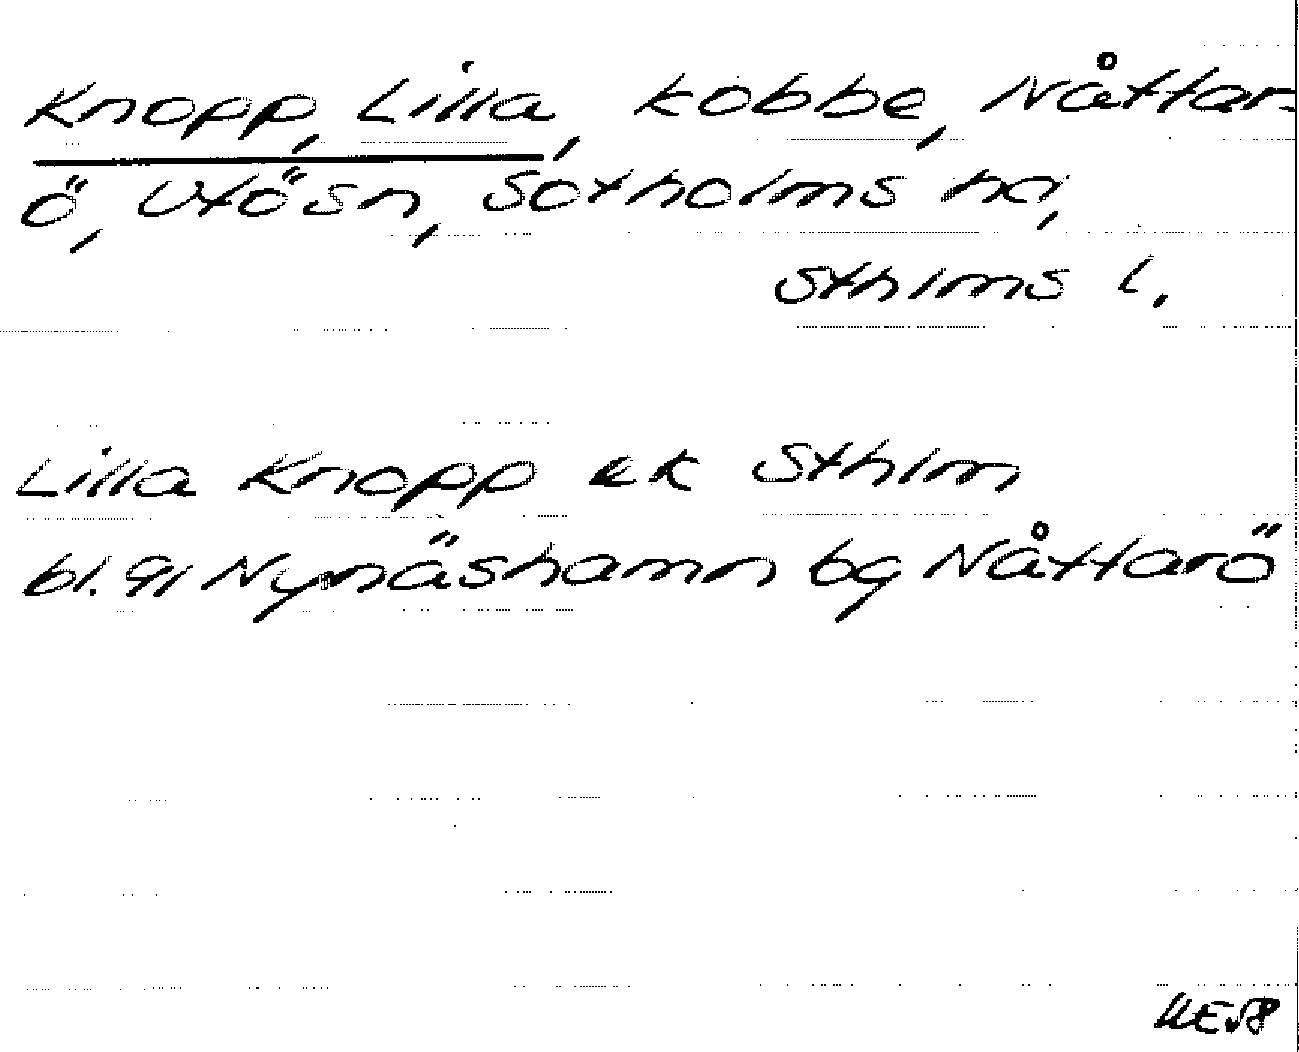 Knopp, Lilla, kobbe, Nåttar-
ö, Utö sn, Sotholms hd,
Sthlms l.
Lilla Knopp ek Sthlm
bl. 91 Nynäshamn bg Nåttarö